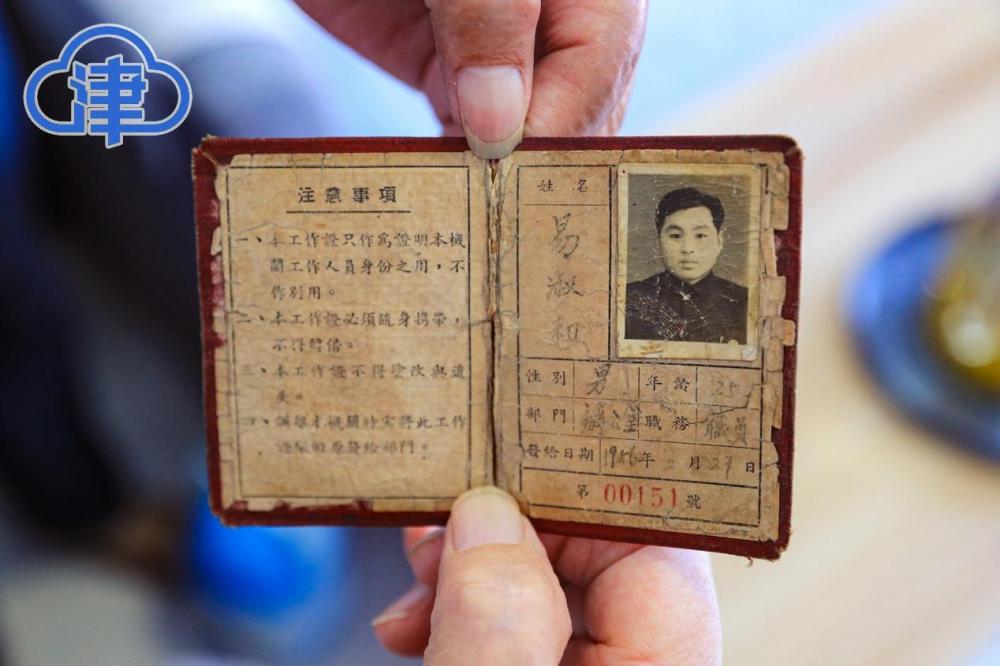 津
注意事項
一、本工作證只作爲證明本機
關工作人員身份之用，不
作别用。
二、本工作證必須隨身携帶，
不得轉借。
三、本工作證不得塗改與遺
失。
四、調離本機關時需將此工作
證繳回原發給部門。
姓名
易淑和
性别 男 年齡 25
部門 辦公室 職務 職員
發給日期 1956年 2月27日
第 00151 號